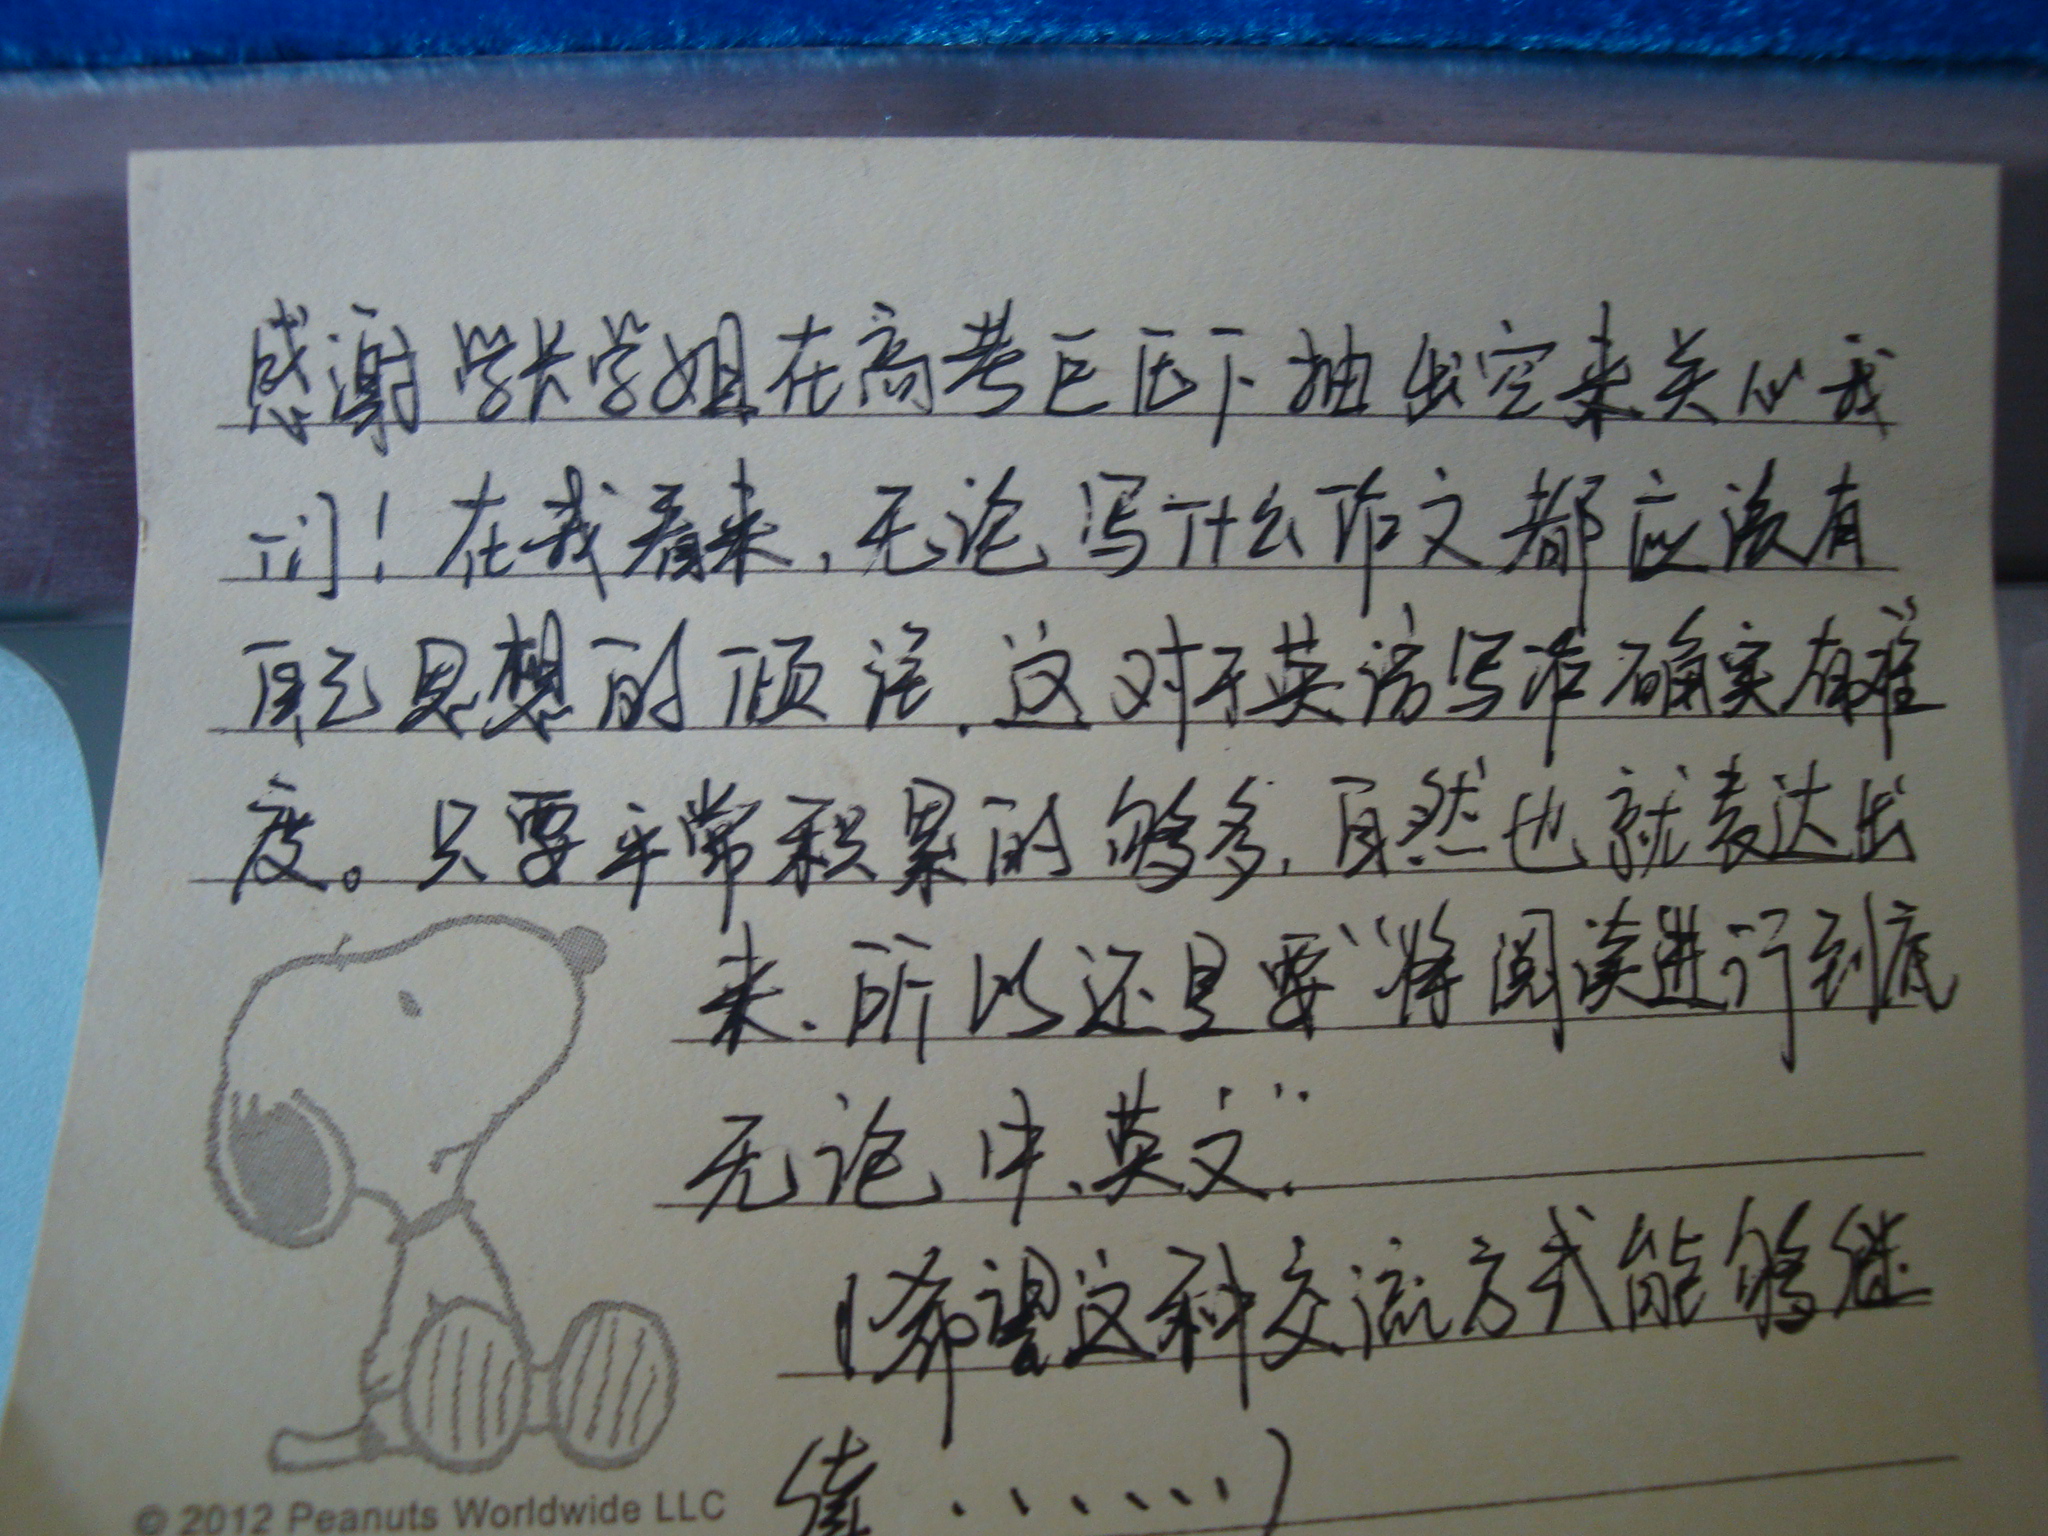 感谢学长学姐在高考巨压下抽出空来关心我
们！在我看来,无论写什么作文都应该有
自己思想的倾诉.这对于英语写作确实有难
度。只要平常积累的够多,自然也就表达出
来.所以还是要“将阅读进行到底
无论中、英文”.
(希望这种交流方式能够继
续······)
© 2012 Peanuts Worldwide LLC